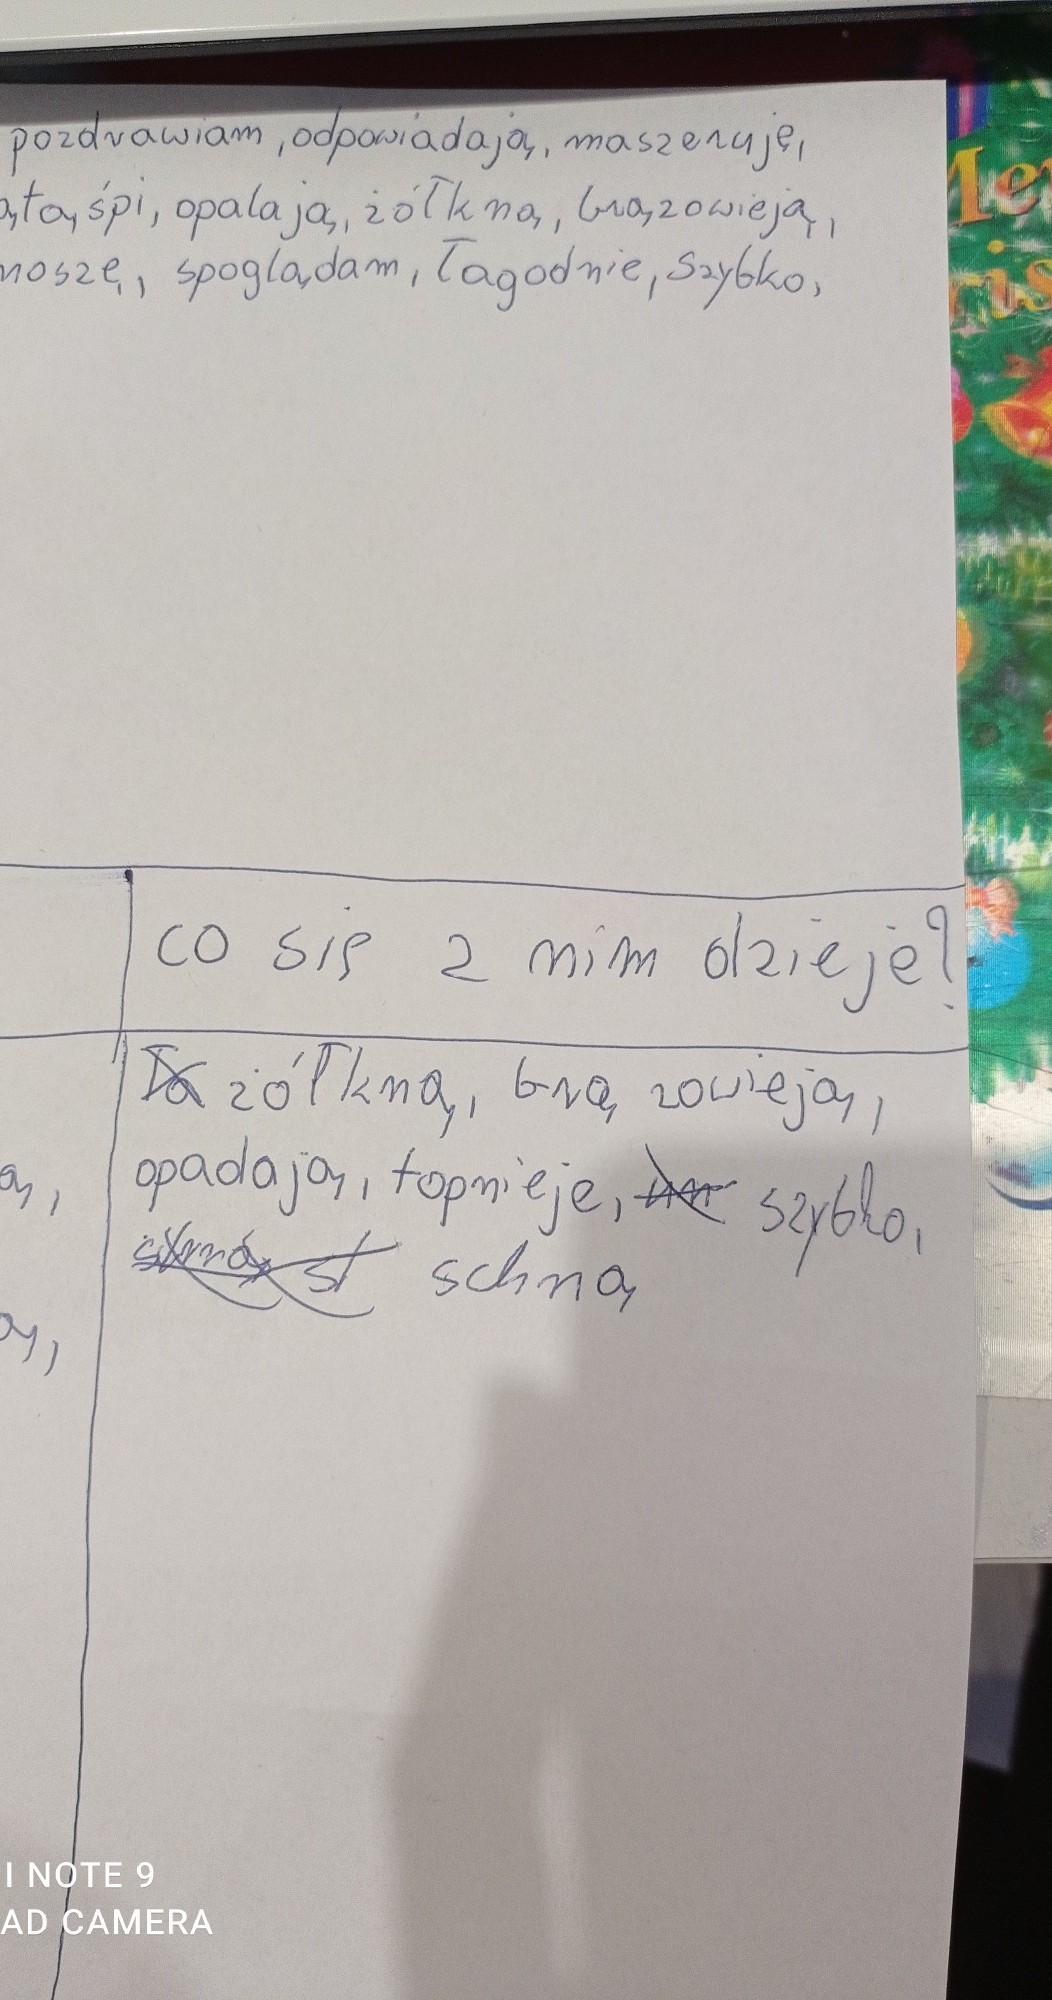 pozdrawiam, odpowiadają, maszeruję,
śpi, opalają, żółkną, brązowieją,
noszę, spoglądam, łagodnie, szybko,
co się z nim dzieje?
żółkną, brązowieją,
opadają, topnieje, szybko,
schną
I NOTE 9
AD CAMERA